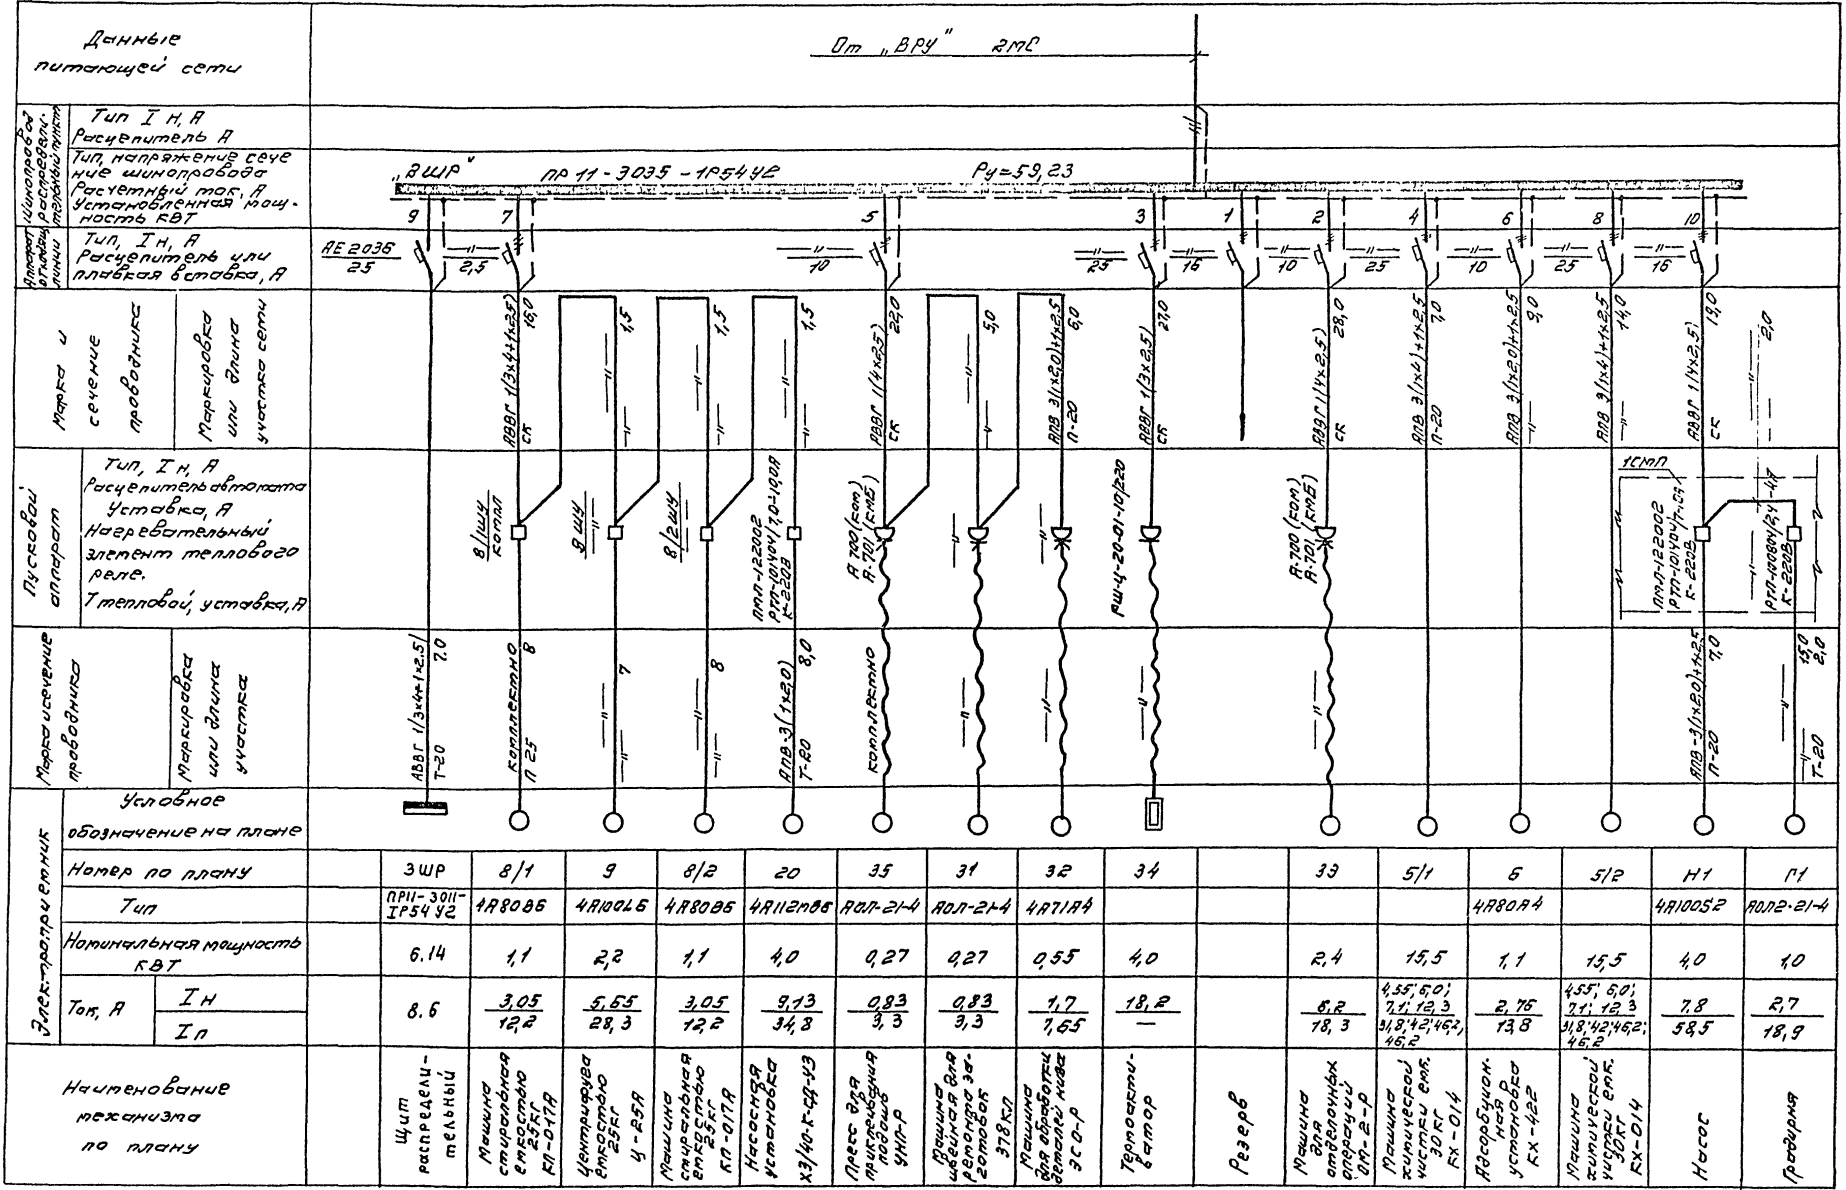 Данные
питающей сети
От „ВРУ" 2МС
Шинопровод
распредели-
тельный пункт
Тип I н, А
Расцепитель А
Тип, напряжение сече
ние шинопровода
Расчетный ток, А
Установленная мощ-
ность КВТ
„ВШР" ПР 11-3035-1Р54У2 Ру=59,23
9 7 5 3 1 2 4 6 8 10
Аппарат
отходящ.
линии
Тип, I н, А
Расцепитель или
плавкая вставка, А
АЕ 2036
25
—"— 2,5
—"— 10
—"— 25
—"— 16
—"— 10
—"— 25
—"— 10
—"— 25
—"— 16
Марка и
сечение
проводника
Маркировка
или длина
участка сети
АВВГ 1(3х4+1х2,5) 16,0
СК
—"— 1,5
—"—
—"— 1,5
—"—
—"— 1,5
—"—
АВВГ 1(4х2,5) 22,0
СК
—"— 5,0
—"—
АПВ 3(1х2,0)+1х2,5 6,0
П-20
АВВГ 1(3х2,5) 27,0
СК
АВВГ 1(4х2,5) 28,0
СК
АПВ 3(1х4)+1х2,5 7,0
П-20
АПВ 3(1х2,0)+1х2,5 9,0
—"—
АПВ 3(1х4)+1х2,5 14,0
—"—
АВВГ 1(4х2,5) 19,0
СК
—"— 2,0
Пусковой
аппарат
Тип, I н, А
Расцепитель автомата
Уставка, А
Нагревательный
элемент теплового
реле.
Т тепловой, уставка, А
8/1ШУ
компл
9 ШУ
—"—
8/2ШУ
—"—
ПМЛ-122002
РТЛ-101404/7,0-10,0А
К-220В
А 700 (ком)
А-701 (КМБ)
—"—
—"—
РШ-Ц-20-01-10/220
А-700 (ком)
А-701 (КМБ)
1СМП
ПМЛ-122002
РТЛ-101404/7-10А
К-220В
—"—
РТЛ-100804/2,4-4А
К-220В
Марка и сечение
проводника
Маркировка
или длина
участка
АВВГ 1/3х4+1х2.5/ 7.0
Т-20
комплектно 8
П 25
—"— 7
—"—
—"— 8
—"—
АПВ-3(1х2,0) 8,0
Т-20
комплектно
—"—
—"—
—"—
—"—
АПВ-3(1х2,0)+1х2,5 7,0
П-20
—"— 15,0
2,0
—"—
Т-20
Электроприемник
Условное
обозначение на плане
Номер по плану 3ШР 8/1 9 8/2 20 35 31 32 34 33 5/1 6 5/2 Н1 Г1
Тип ПР11-3011-
IР54 У2 4А80В6 4А100L6 4А80В6 4А112МВ6 АОЛ-21-4 АОЛ-21-4 4А71А4 4А80А4 4А100S2 АОЛ2-21-4
Номинальная мощность
КВТ 6.14 1,1 2,2 1,1 4,0 0,27 0,27 0,55 4,0 2,4 15,5 1,1 15,5 4,0 1,0
Ток, А
I н
I п
8.6
3,05
12,2
5,65
28,3
3,05
12,2
9,13
34,8
0,83
3,3
0,83
3,3
1,7
7,65
18,2
—
6,2
18,3
4,55; 6,0;
7,1; 12,3
31,8; 42; 46,2;
46,2
2,76
13,8
4,55; 6,0;
7,1; 12,3
31,8; 42; 46,2;
46,2
7.8
58,5
2,7
18,9
Наименование
механизма
по плану
Щит
распредели-
тельный
Машина
стиральная
емкостью
25кг
КП-017А
Центрифуга
емкостью
25кг
Ц-25А
Машина
стиральная
емкостью
25кг
КП-017А
Насосная
установка
Х3/40-К-СД-У3
Пресс для
приклеивания
подошв
УНП-Р
Машина
швейная для
ремонта за-
готовок
378КЛ
Машина
для обработки
деталей низа
ЭСО-Р
Термоакти-
ватор
Резерв
Машина
для
отделочных
операций
ОМ-2-Р
Машина
химической
чистки емк.
30 кг
КХ-014
Адсорбцион-
ная
установка
КХ-422
Машина
химической
чистки емк.
30кг
КХ-014
Насос
Градирня